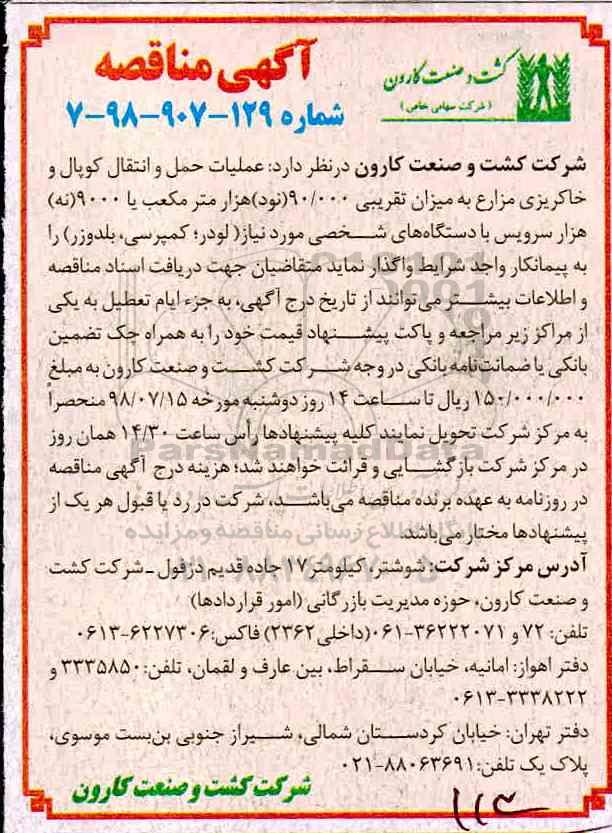 کشت و صنعت کارون
(شرکت سهامی خاص)
آگهی مناقصه
شماره ۱۲۹-۹۰۷-۹۸-۷
شرکت کشت و صنعت کارون درنظر دارد: عملیات حمل و انتقال کوپال و
خاکریزی مزارع به میزان تقریبی ۹۰/۰۰۰(نود)هزار متر مکعب یا ۹۰۰۰(نه)
هزار سرویس با دستگاه‌های شخصی مورد نیاز( لودر؛ کمپرسی، بلدوزر) را
به پیمانکار واجد شرایط واگذار نماید متقاضیان جهت دریافت اسناد مناقصه
و اطلاعات بیشتر می‌توانند از تاریخ درج آگهی، به جزء ایام تعطیل به یکی
از مراکز زیر مراجعه و پاکت پیشنهاد قیمت خود را به همراه چک تضمین
بانکی یا ضمانت‌نامه بانکی در وجه شرکت کشت و صنعت کارون به مبلغ
۱۵۰/۰۰۰/۰۰۰ ریال تا ساعت ۱۴ روز دوشنبه مورخه ۹۸/۰۷/۱۵ منحصراً
به مرکز شرکت تحویل نمایند کلیه پیشنهادها رأس ساعت ۱۴/۳۰ همان روز
در مرکز شرکت بازگشایی و قرائت خواهند شد؛ هزینه درج آگهی مناقصه
در روزنامه به عهده برنده مناقصه می‌باشد، شرکت در رد یا قبول هر یک از
پیشنهادها مختار می‌باشد.
آدرس مرکز شرکت: شوشتر، کیلومتر ۱۷ جاده قدیم دزفول ـ شرکت کشت
و صنعت کارون، حوزه مدیریت بازرگانی (امور قراردادها)
تلفن: ۷۲ و ۳۶۲۲۲۰۷۱-۰۶۱(داخلی۲۳۶۲) فاکس: ۶۲۲۷۳۰۶-۰۶۱۳
دفتر اهواز: امانیه، خیابان سقراط، بین عارف و لقمان، تلفن: ۳۳۳۵۸۵۰ و
۳۳۳۸۲۲۲-۰۶۱۳
دفتر تهران: خیابان کردستان شمالی، شیراز جنوبی بن‌بست موسوی،
پلاک یک تلفن: ۸۸۰۶۳۶۹۱-۰۲۱
شرکت کشت و صنعت کارون
ParsNamadData
پایگاه اطلاع رسانی مناقصه و مزایده